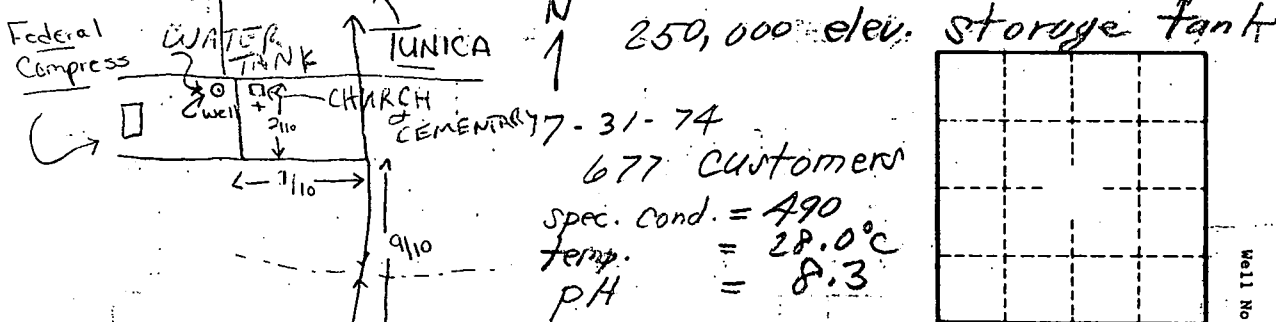 Federal
Compress
WATER
TANK
TUNICA
N
250,000 elev. storage tank
Well
CHURCH
&
CEMENTARY
2/10
7-31-74
677 Customers
1/10
spec. cond. = 490
temp. = 28.0°C
pH = 8.3
9/10
Well No